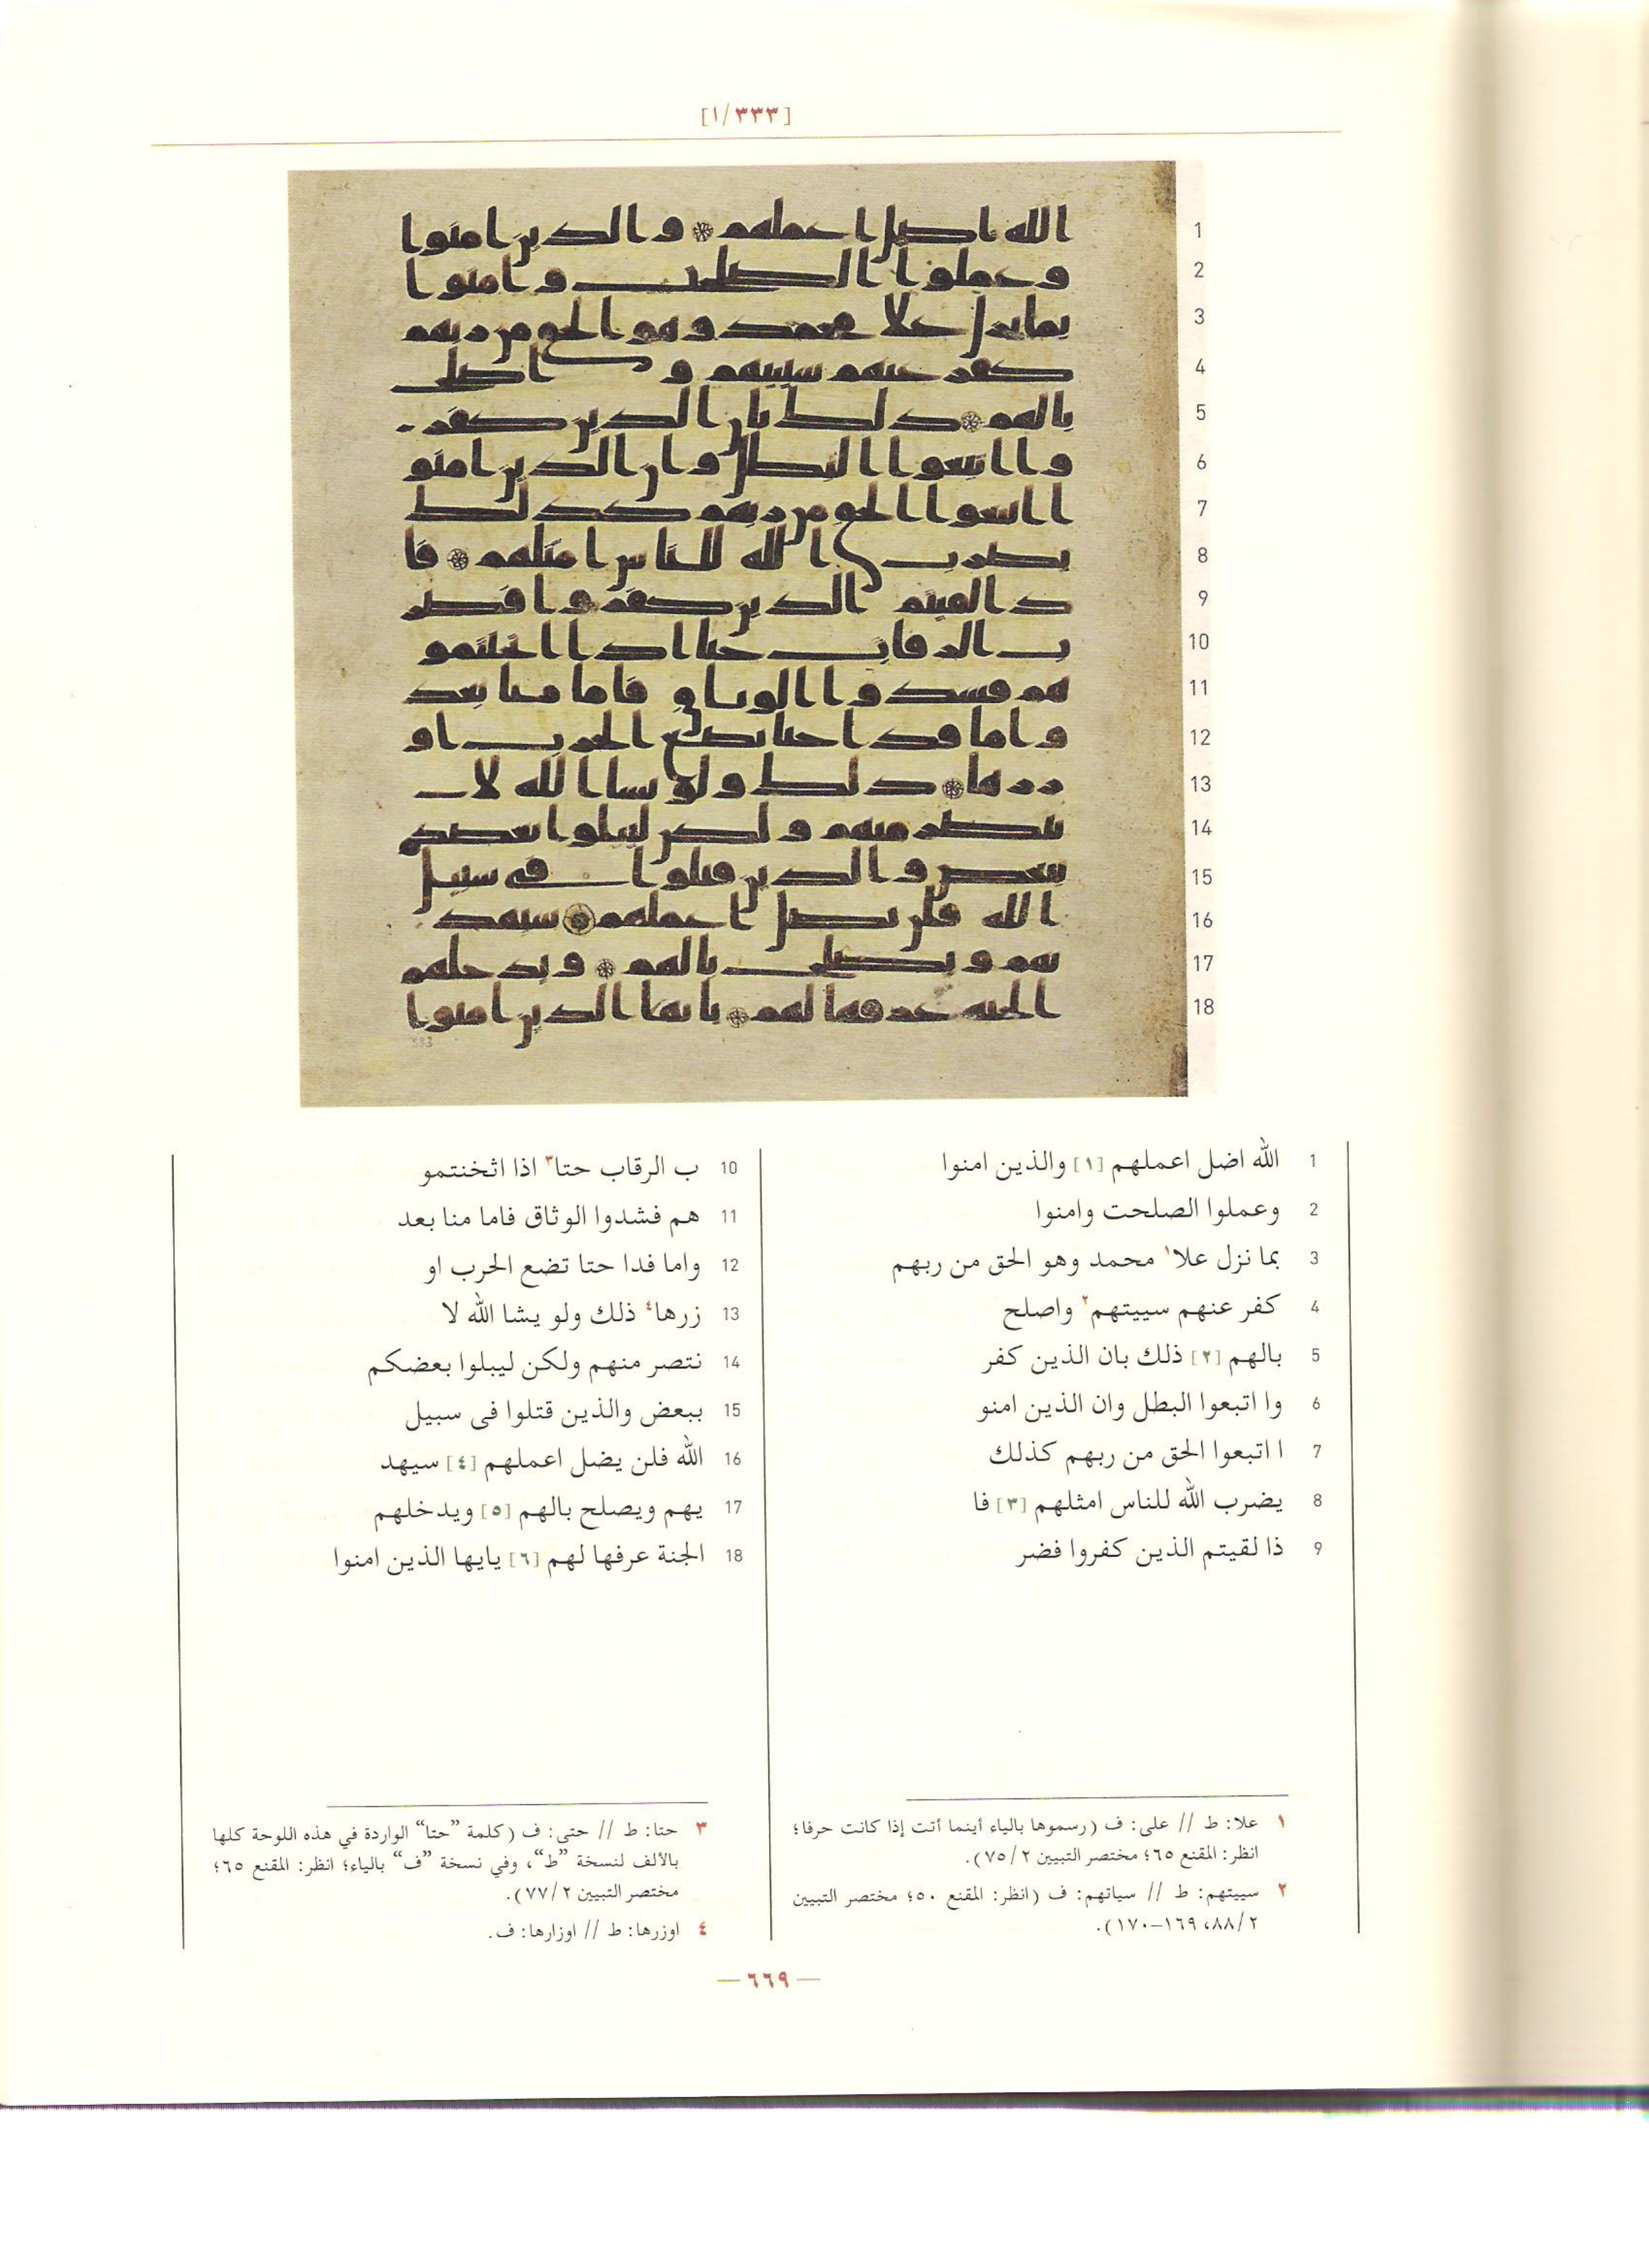 [١/٣٣٣]
1 الله اضل اعملهم [١] والذين امنوا
2 وعملوا الصلحت وامنوا
3 بما نزل علا١ محمد وهو الحق من ربهم
4 كفر عنهم سييتهم٢ واصلح
5 بالهم [٢] ذلك بان الذين كفر
6 وا اتبعوا البطل وان الذين امنو
7 ا اتبعوا الحق من ربهم كذلك
8 يضرب الله للناس امثلهم [٣] فا
9 ذا لقيتم الذين كفروا فضر
10 ب الرقاب حتا٣ اذا اثخنتمو
11 هم فشدوا الوثاق فاما منا بعد
12 واما فدا حتا تضع الحرب او
13 زرها٤ ذلك ولو يشا الله لا
14 نتصر منهم ولكن ليبلوا بعضكم
15 ببعض والذين قتلوا فى سبيل
16 الله فلن يضل اعملهم [٤] سيهد
17 يهم ويصلح بالهم [٥] ويدخلهم
18 الجنة عرفها لهم [٦] يايها الذين امنوا
١ علا: ط // على: ف (رسموها بالياء أينما أتت إذا كانت حرفا؛
انظر: المقنع ٦٥؛ مختصر التبيين ٧٥/٢).
٢ سييتهم: ط // سياتهم: ف (انظر: المقنع ٥٠؛ مختصر التبيين
٨٨/٢، ١٦٩–١٧٠).
٣ حتا: ط // حتى: ف (كلمة ”حتا“ الواردة في هذه اللوحة كلها
بالألف لنسخة ”ط“، وفي نسخة ”ف“ بالياء؛ انظر: المقنع ٦٥؛
مختصر التبيين ٧٧/٢).
٤ اوزرها: ط // اوزارها: ف.
—٦٦٩—